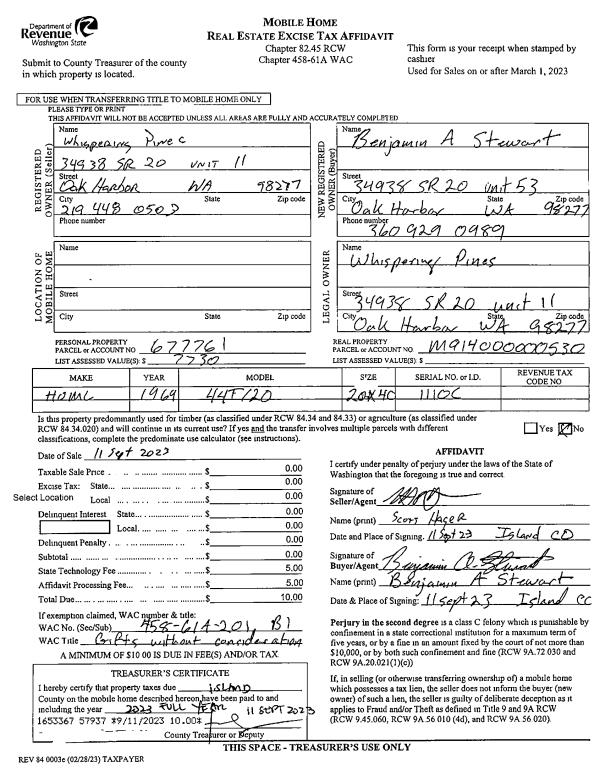 Department of
Revenue
Washington State
Submit to County Treasurer of the county
in which property is located.
MOBILE HOME
REAL ESTATE EXCISE TAX AFFIDAVIT
Chapter 82.45 RCW
Chapter 458-61A WAC
This form is your receipt when stamped by
cashier
Used for Sales on or after March 1, 2023
FOR USE WHEN TRANSFERRING TITLE TO MOBILE HOME ONLY
PLEASE TYPE OR PRINT
THIS AFFIDAVIT WILL NOT BE ACCEPTED UNLESS ALL AREAS ARE FULLY AND ACCURATELY COMPLETED
REGISTERED OWNER (Seller)
Name
Whispering Pine
34938 SR 20 UNIT 11
Street
Oak Harbor WA 98277
City State Zip code
219 448 0502
Phone number
NEW REGISTERED OWNER (Buyer)
Name
Benjamin A Stewart
Street
34938 SR 20 unit 53
City State Zip code
Oak Harbor WA 98277
Phone number
360 929 0989
LOCATION OF MOBILE HOME
Name
Street
City State Zip code
LEGAL OWNER
Name
Whispering Pines
Street
34938 SR 20 unit 11
City State Zip code
Oak Harbor WA 98277
PERSONAL PROPERTY
PARCEL or ACCOUNT NO 677761
LIST ASSESSED VALUE(S): $ 7730
REAL PROPERTY
PARCEL or ACCOUNT NO
LIST ASSESSED VALUE(S): $
MAKE YEAR MODEL SIZE SERIAL NO. or I.D. REVENUE TAX CODE NO
1969 20X40 1110C
Is this property predominantly used for timber (as classified under RCW 84.34 and 84.33) or agriculture (as classified under
RCW 84.34.020) and will continue in its current use? If yes and the transfer involves multiple parcels with different
classifications, complete the predominate use calculator (see instructions).
Yes No
Date of Sale 11 Sept 2023
Taxable Sale Price $ 0.00
Excise Tax: State $ 0.00
Select Location Local $ 0.00
Delinquent Interest State $ 0.00
Local $ 0.00
Delinquent Penalty $ 0.00
Subtotal $ 0.00
State Technology Fee $ 5.00
Affidavit Processing Fee $ 5.00
Total Due $ 10.00
If exemption claimed, WAC number & title:
WAC No. (Sec/Sub) 458-61A-201, B1
WAC Title Gifts without consideration
A MINIMUM OF $10.00 IS DUE IN FEE(S) AND/OR TAX
TREASURER'S CERTIFICATE
I hereby certify that property taxes due ISLAND
County on the mobile home described hereon have been paid to and
including the year 2023 FULL YEAR 11 SEPT 2023
1653367 57937 09/11/2023 10.00
County Treasurer or Deputy
AFFIDAVIT
I certify under penalty of perjury under the laws of the State of
Washington that the foregoing is true and correct
Signature of
Seller/Agent
Name (print) Scott Hager
Date and Place of Signing: 11 Sept 23 Island CO
Signature of
Buyer/Agent Benjamin A. Stewart
Name (print) Benjamin A Stewart
Date & Place of Signing: 11 sept 23 Island CO
Perjury in the second degree is a class C felony which is punishable by
confinement in a state correctional institution for a maximum term of
five years, or by a fine in an amount fixed by the court of not more than
$10,000, or by both such confinement and fine (RCW 9A.72 030 and
RCW 9A.20.021(1)(c))
If, in selling (or otherwise transferring ownership of) a mobile home
which possesses a tax lien, the seller does not inform the buyer (new
owner) of such a lien, the seller is guilty of deliberate deception as it
applies to Fraud and/or Theft as defined in Title 9 and 9A RCW
(RCW 9.45.060, RCW 9A 56 010 (4d), and RCW 9A 56 020).
THIS SPACE - TREASURER'S USE ONLY
REV 84 0003e (02/28/23) TAXPAYER